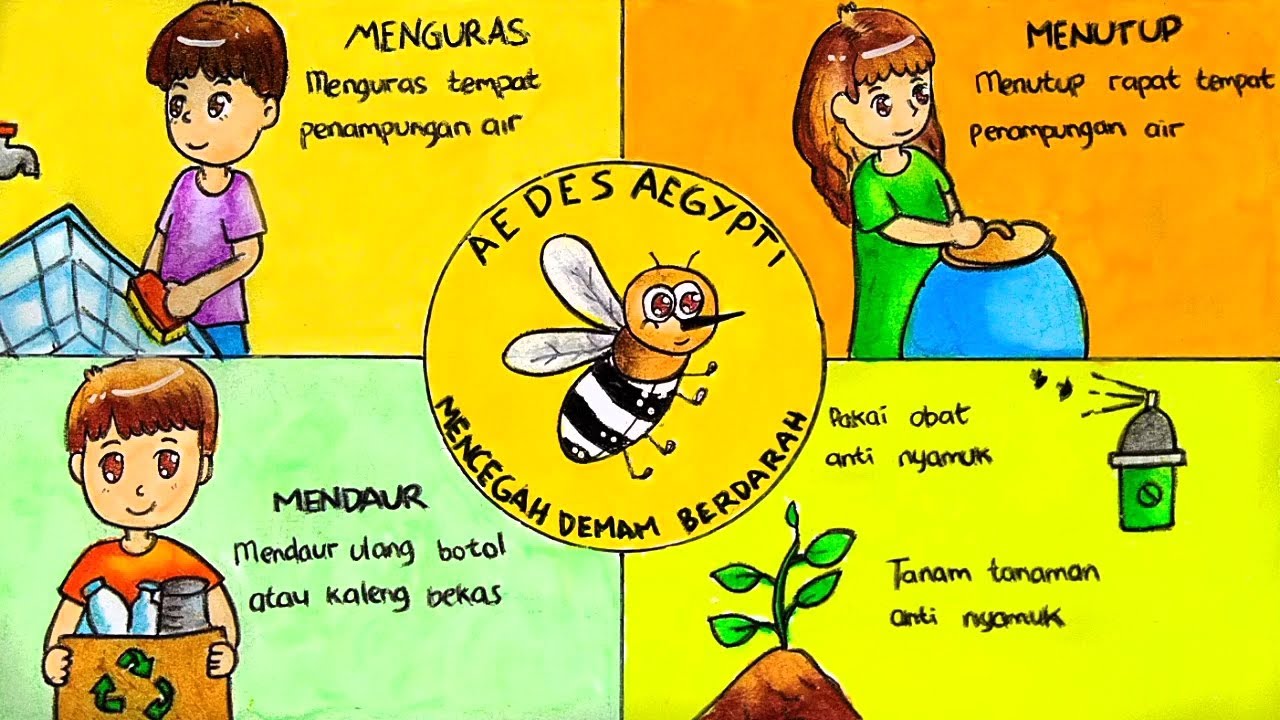 MENGURAS
Menguras tempat
penampungan air
MENUTUP
Menutup rapat tempat
penampungan air
AEDES AEGYPTI
MENCEGAH DEMAM BERDARAH
MENDAUR
Mendaur ulang botol
atau kaleng bekas
Pakai obat
anti nyamuk
Tanam tanaman
anti nyamuk